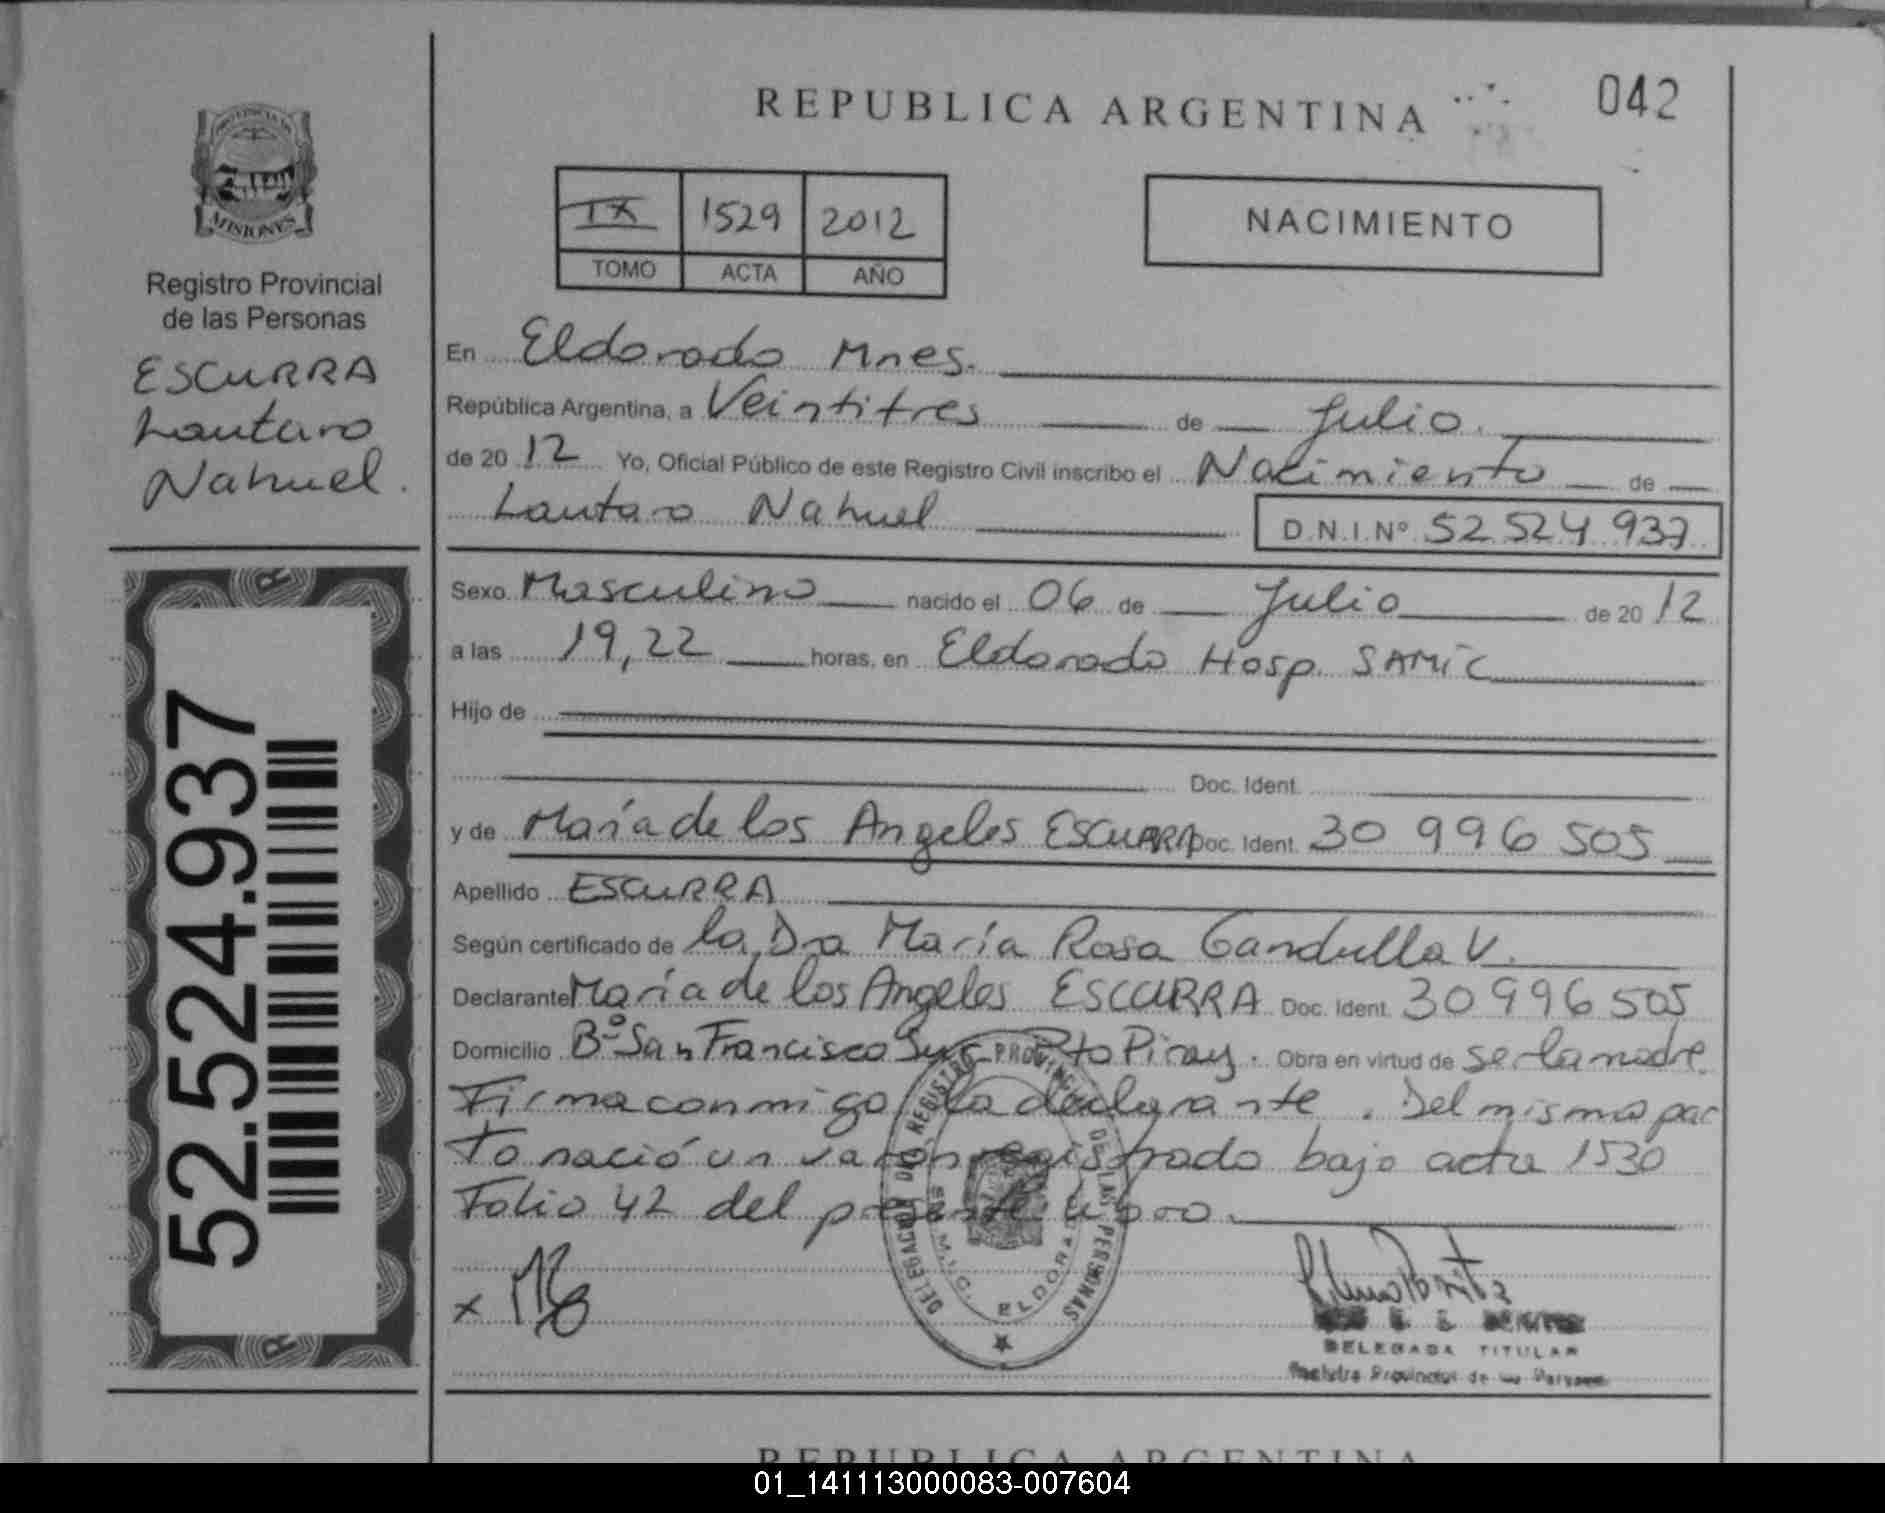 REPUBLICA ARGENTINA
042
PROVINCIA DE
MISIONES
Registro Provincial
de las Personas
ESCURRA
Lautaro
Nahuel.
IX 1529 2012
TOMO ACTA AÑO
NACIMIENTO
En Eldorado Mnes.
República Argentina, a Veintitres de Julio.
de 20 12 Yo, Oficial Público de este Registro Civil inscribo el Nacimiento de
Lautaro Nahuel D.N.I.Nº 52 524 937
Sexo Masculino nacido el 06 de Julio de 20 12
a las 19,22 horas, en Eldorado Hosp. SAMIC
Hijo de
Doc. Ident.
y de María de los Angeles ESCURRA Doc. Ident. 30 996 505
Apellido ESCURRA
Según certificado de la Dra María Rosa Gandulla V.
Declarante María de los Angeles ESCURRA Doc. Ident. 30 996 505
Domicilio Bº San Francisco Sur Pto Piray. Obra en virtud de ser la madre.
Firma conmigo la declarante. Del mismo par
to nació un varon registrado bajo acta 1530
Folio 42 del presente libro.
52.524.937
DELEGACION DEL REGISTRO PROVINCIAL DE LAS PERSONAS
ELDORADO
DELEGADA TITULAR
Registro Provincial de las Personas
REPUBLICA ARGENTINA
01_141113000083-007604